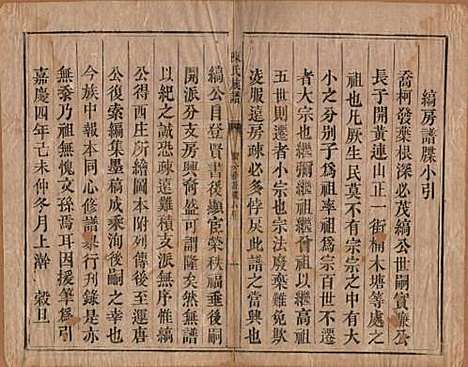 縞房譜牒小引
喬柯發葉根深必茂縞公世嗣實廉公
長于開黃連山正一街桐木塘等處之
祖也凡厥生民莫不有宗宗之中有大
小之分別子為祖率祖為宗百世不遷
者大宗也繼禰繼祖繼曾祖繼高祖
五世則遷者小宗也宗法廢棄雖免欺
淩服遠房疎必多悖戾此譜之當興也
陳氏族譜
縞公目登賢書後顯宦榮秩福垂後嗣
開派分支興裔盛可謂隆矣然無譜
以紀之誠恐疎遠難積支派無序惟縞
公得西庄所繪圖本附列傳後至唐
公復索編集墨稿成乘洵後嗣之幸也
今族中報本同心修譜舉行刊錄是亦
無忝乃祖無愧文孫焉耳因援筆為引
嘉慶四年己未仲冬月上澣 穀旦